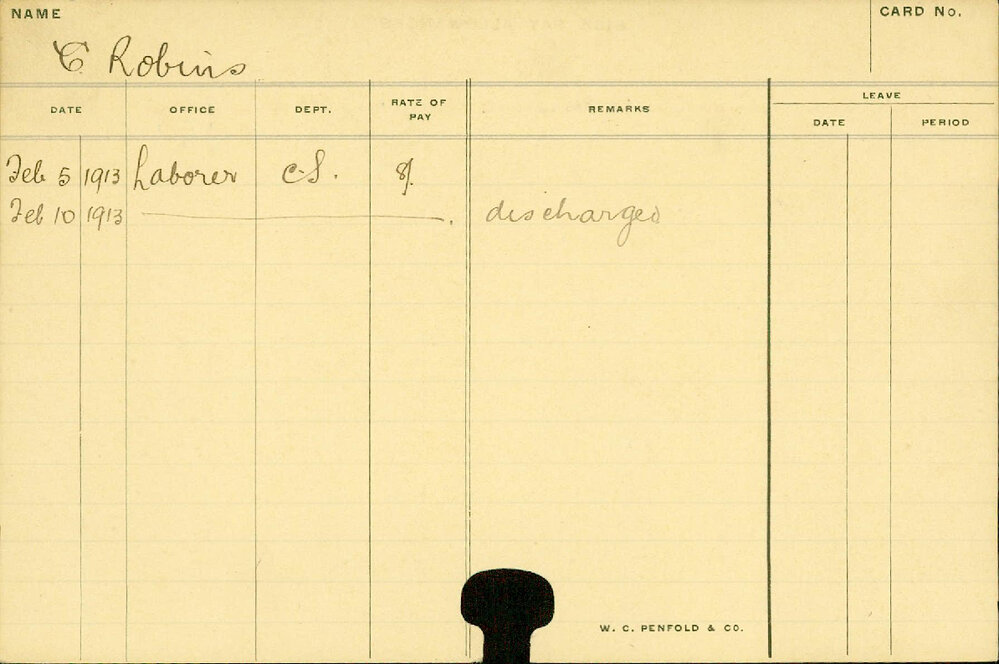 NAME
CARD No.
C Robins
DATE OFFICE DEPT. RATE OF PAY REMARKS LEAVE
DATE PERIOD
Feb 5 1913 Laborer C.S. 8/.
Feb 10 1913 discharged
W. C. PENFOLD & CO.